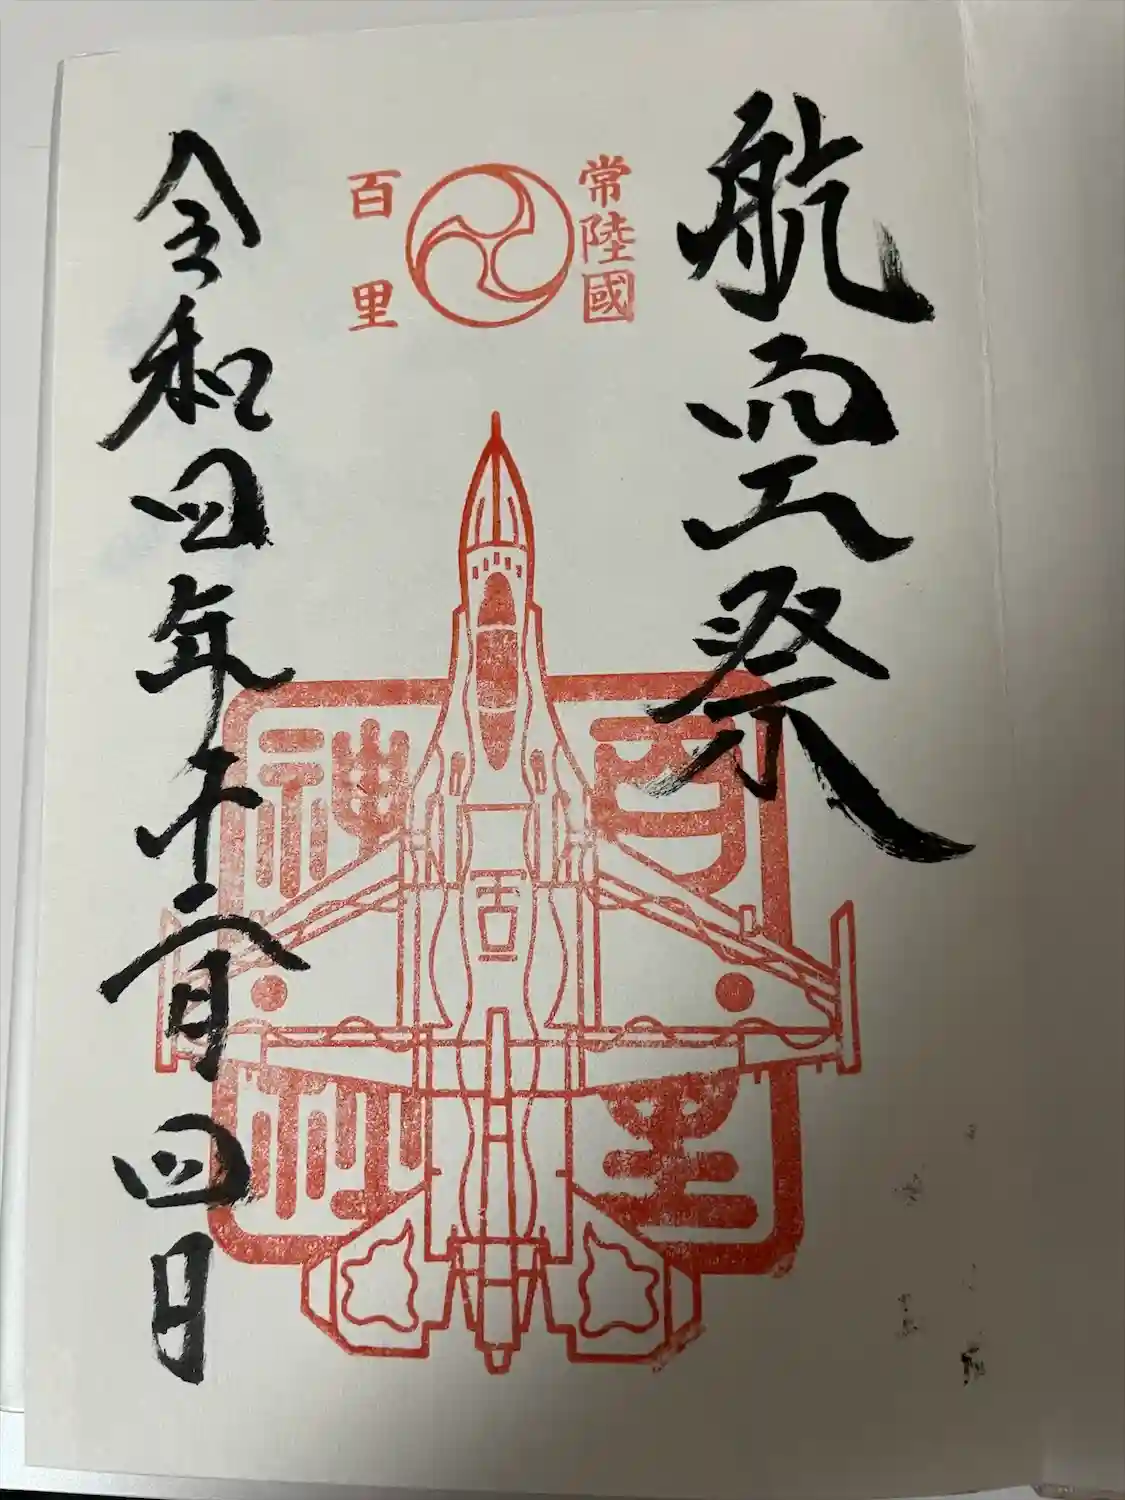 航空祭
常陸國
百里
百里
神社
令和四年十二月四日